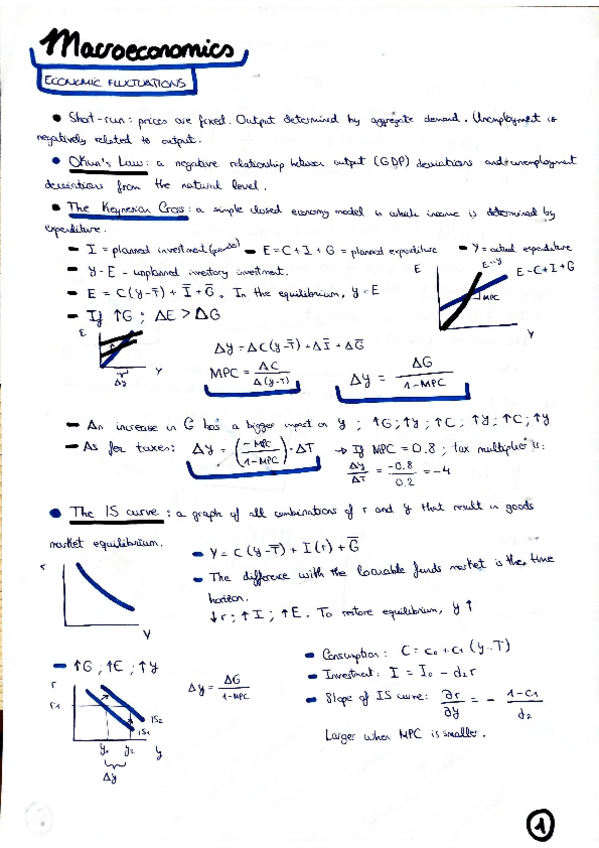 Macroeconomics
ECONOMIC FLUCTUATIONS
• Short-run: prices are fixed. Output determined by aggregate demand. Unemployment is
negatively related to output.
• Okun's Law: a negative relationship between output (GDP) deviations and unemployment
deviations from the natural level.
• The Keynesian Cross: a simple closed economy model in which income is determined by
expenditure.
- I = planned investment - E = C + I + G = planned expenditure - Y = actual expenditure
- Y - E - unplanned inventory investment.
- E = C(Y-T̄) + Ī + Ḡ. In the equilibrium, Y = E
- If ↑G ; ΔE > ΔG
E Y ΔY
E E=Y E=C+I+G MPC Y
ΔY = ΔC(Y-T̄) + ΔĪ + ΔḠ
MPC = ΔC / Δ(Y-T)
ΔY = ΔG / 1-MPC
- An increase in G has a bigger impact on Y ; ↑G ; ↑Y ; ↑C ; ↑Y ; ↑C ; ↑Y
- As for taxes: ΔY = (-MPC / 1-MPC) · ΔT → If MPC = 0.8 ; tax multiplier is:
ΔY / ΔT = -0.8 / 0.2 = -4
• The IS curve: a graph of all combinations of r and y that result in goods
market equilibrium.
r Y
- Y = C(Y-T̄) + I(r) + Ḡ
- The difference with the loanable funds market is the time
horizon.
↓r ; ↑I ; ↑E. To restore equilibrium, Y ↑
- ↑G ; ↑E ; ↑Y
r r1 IS2 IS1 y1 y2 y ΔY
ΔY = ΔG / 1-MPC
- Consumption: C = c0 + c1 (Y-T)
- Investment: I = I0 - d2r
- Slope of IS curve: ∂r / ∂y = - 1-C1 / d2
Larger when MPC is smaller.
1